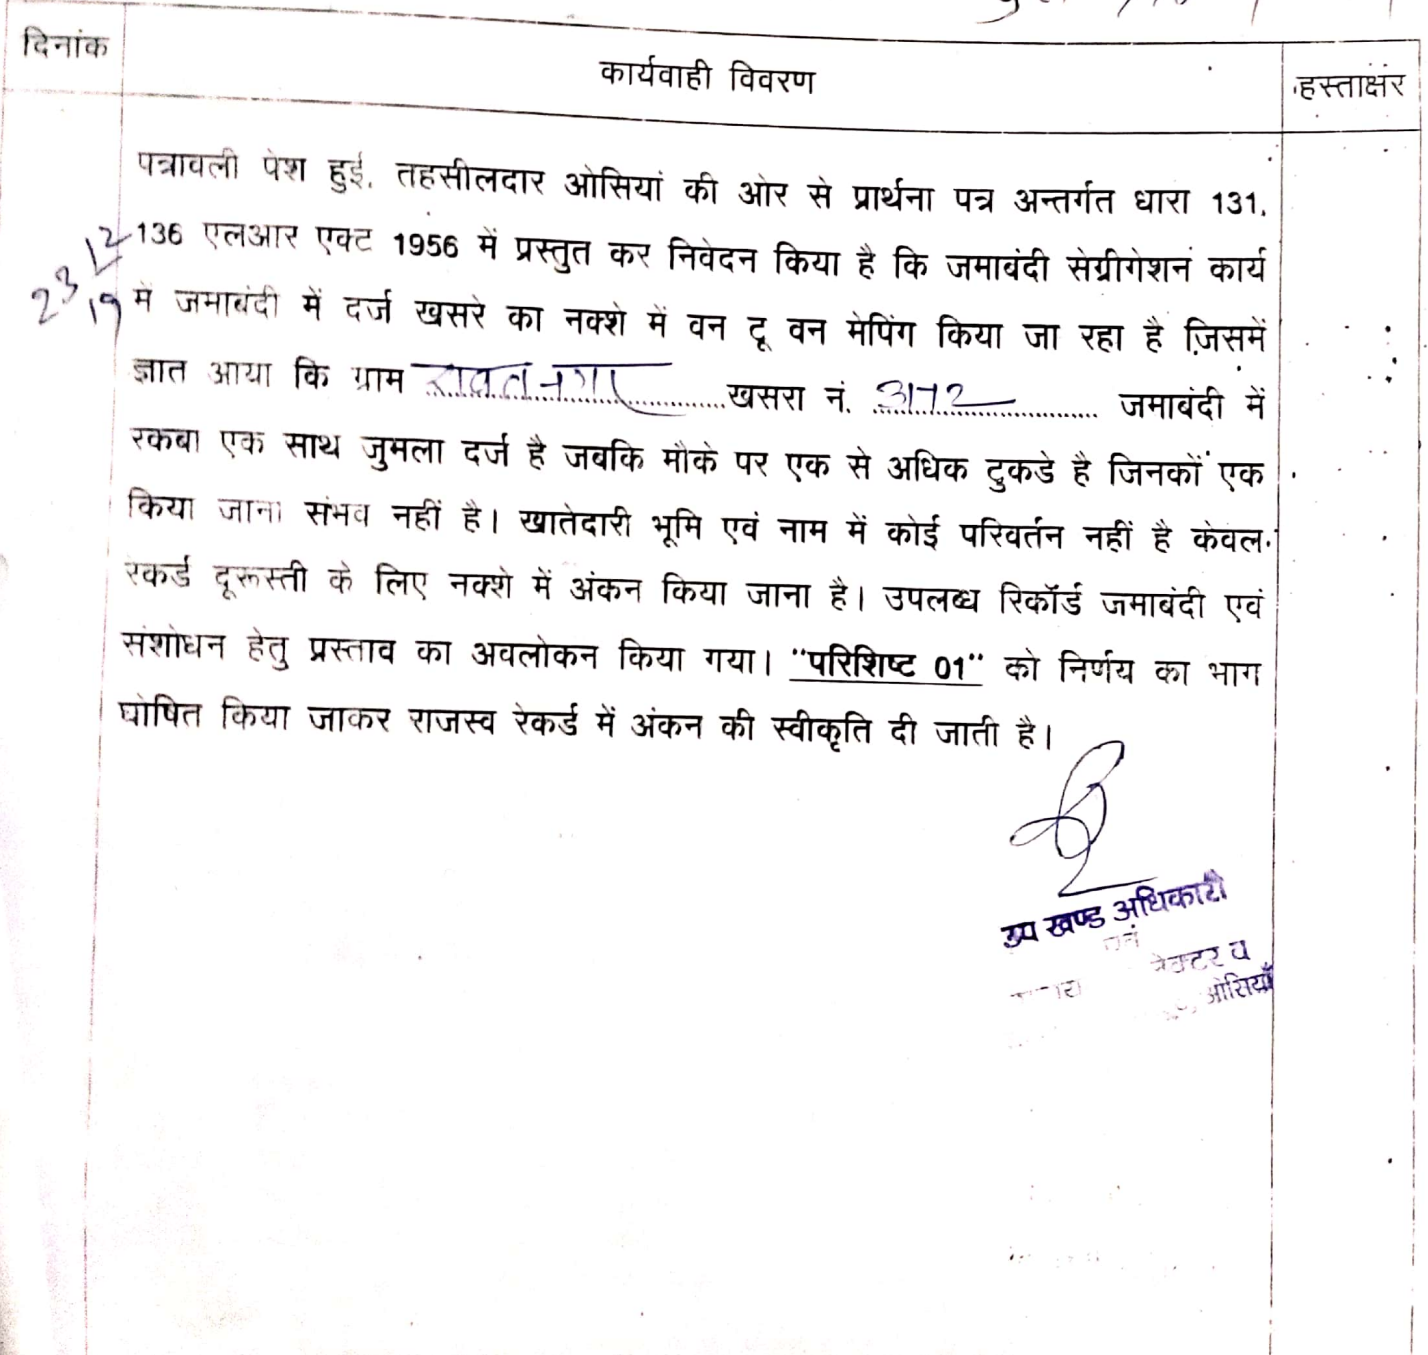 दिनांक
कार्यवाही विवरण
हस्ताक्षर
पत्रावली पेश हुई. तहसीलदार ओसियां की ओर से प्रार्थना पत्र अन्तर्गत धारा 131,
23/12/19
136 एलआर एक्ट 1956 में प्रस्तुत कर निवेदन किया है कि जमाबंदी सेग्रीगेशन कार्य
में जमाबंदी में दर्ज खसरे का नक्शे में वन टू वन मेपिंग किया जा रहा है जिसमें
ज्ञात आया कि ग्राम रावतनगर खसरा नं. जमाबंदी में
रकबा एक साथ जुमला दर्ज है जबकि मौके पर एक से अधिक टुकडे है जिनकों एक
किया जाना संभव नहीं है। खातेदारी भूमि एवं नाम में कोई परिवर्तन नहीं है केवल
रेकर्ड दूरूस्ती के लिए नक्शे में अंकन किया जाना है। उपलब्ध रिकॉर्ड जमाबंदी एवं
संशोधन हेतु प्रस्ताव का अवलोकन किया गया। "परिशिष्ट 01" को निर्णय का भाग
घोषित किया जाकर राजस्व रेकर्ड में अंकन की स्वीकृति दी जाती है।
उप खण्ड अधिकारी
एवं
ओसियाँ